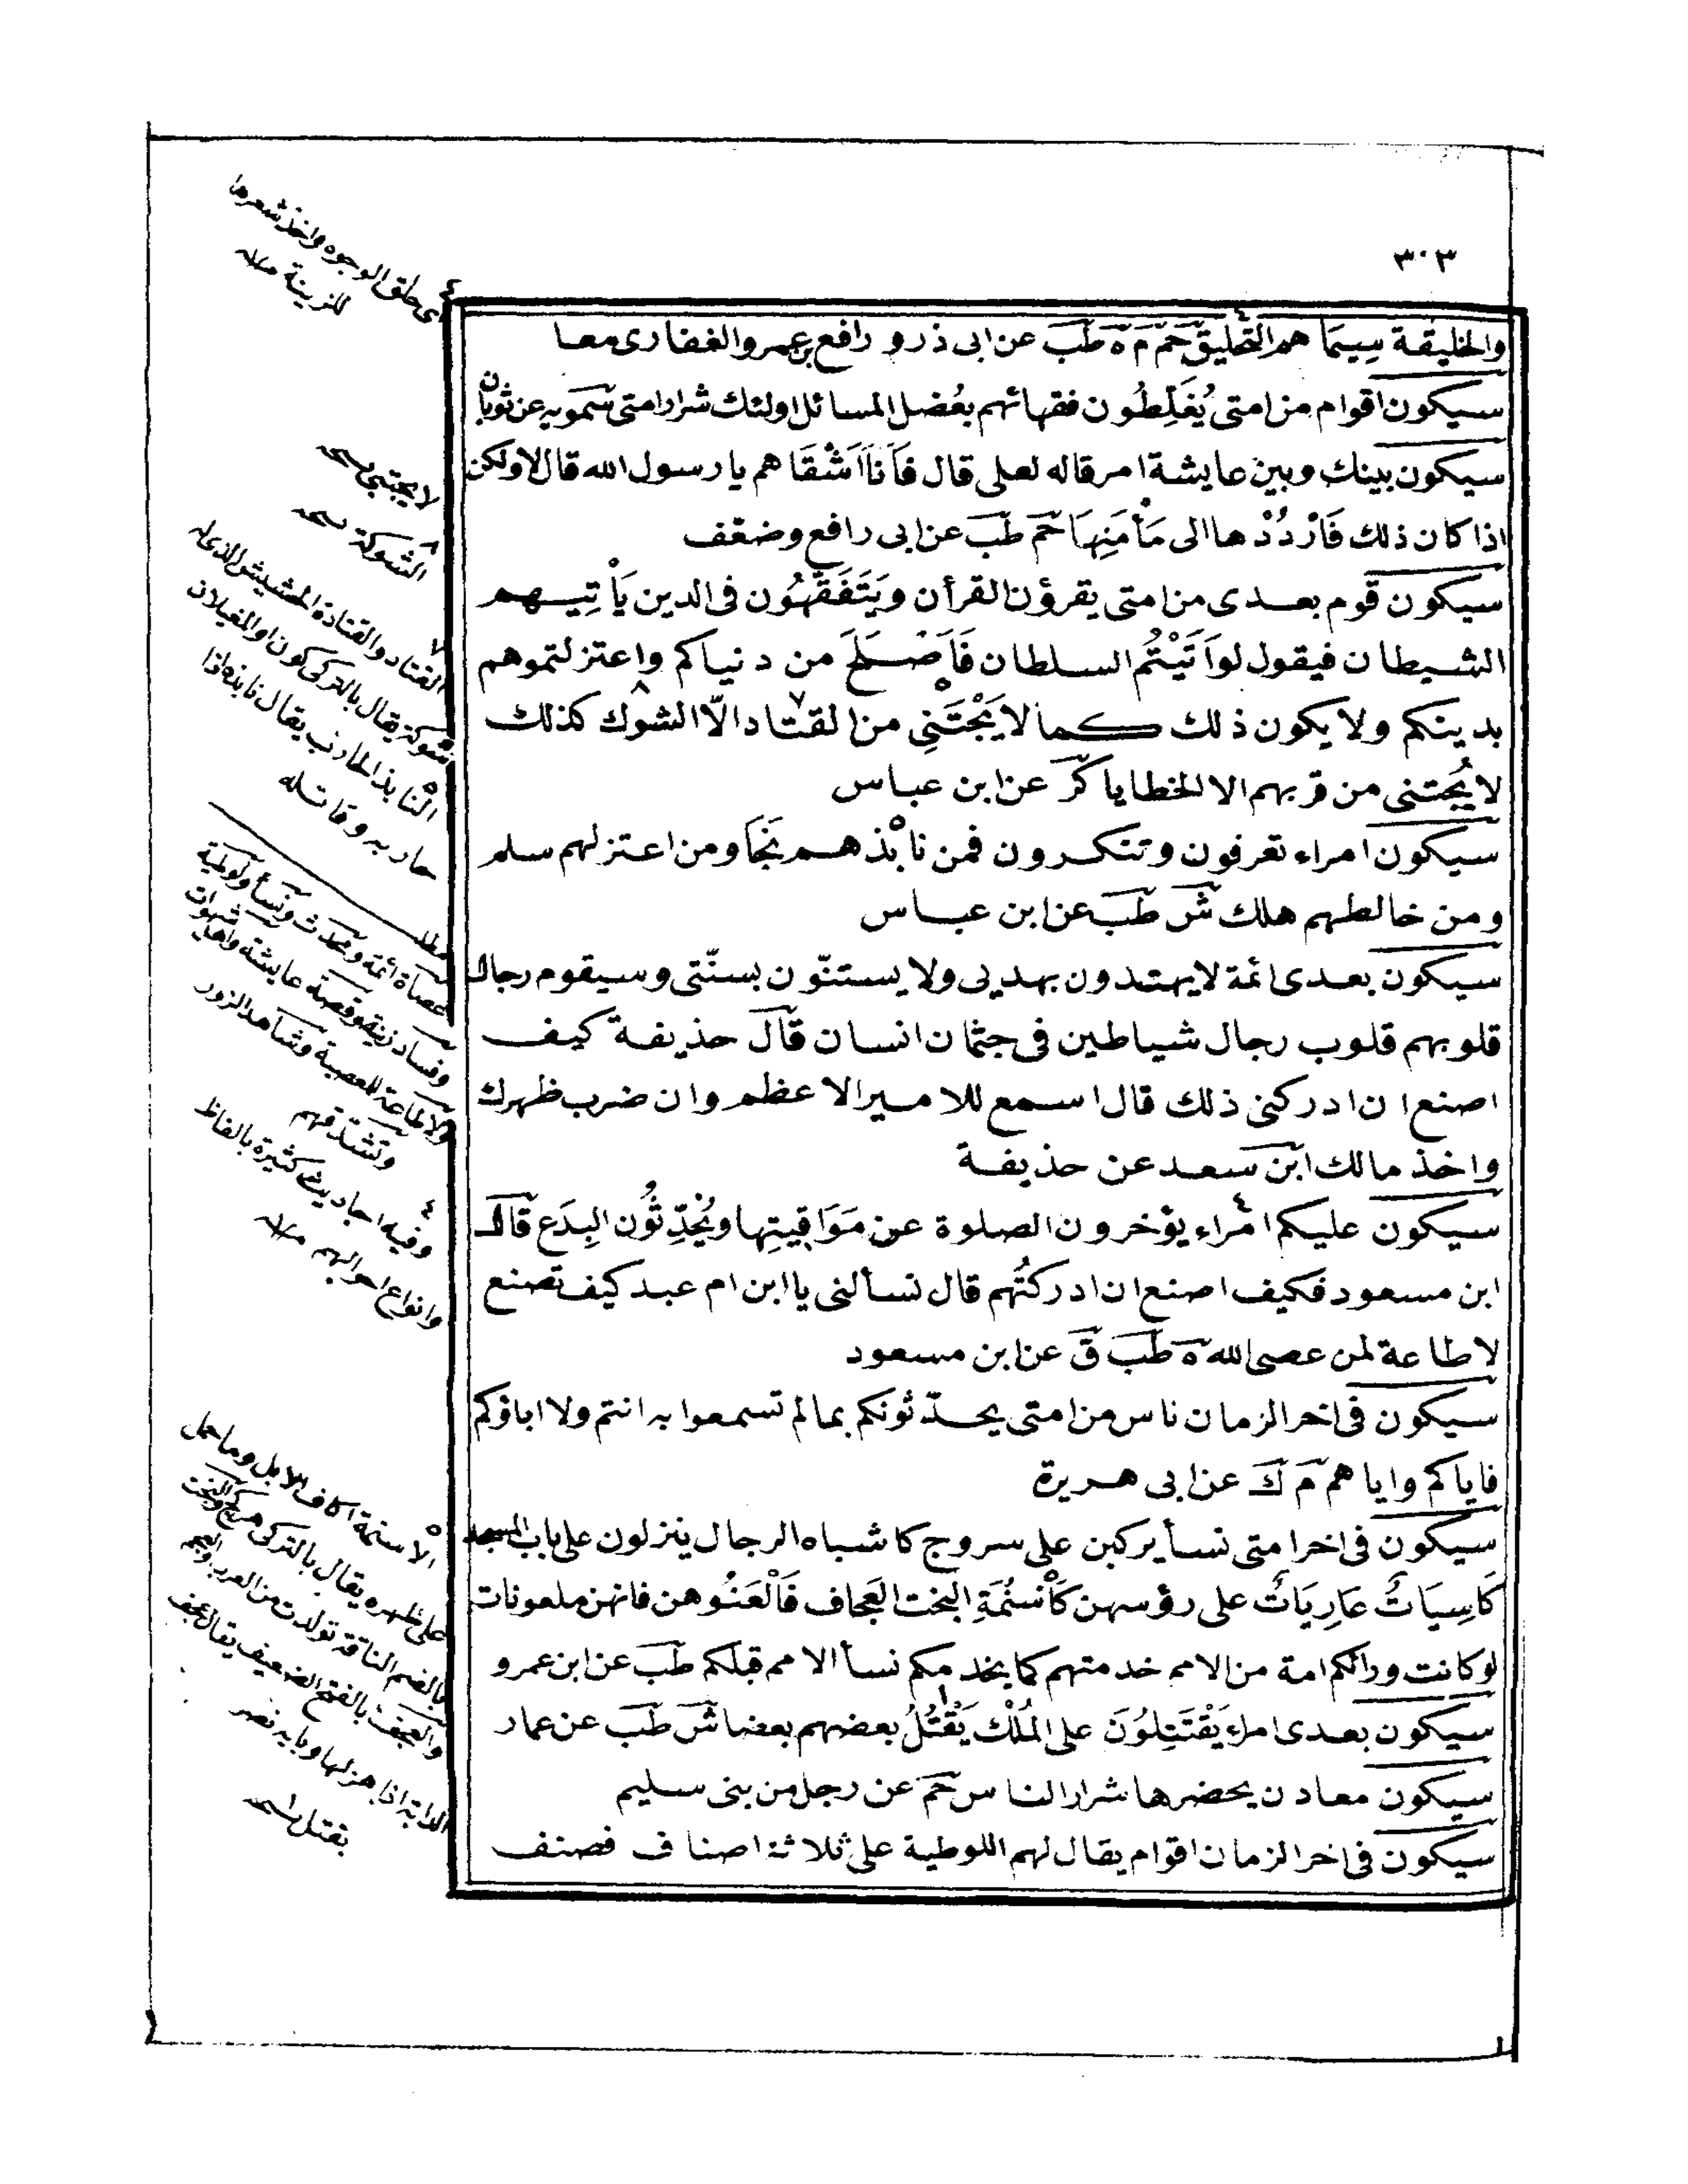 ٣٠٣
والخليقة سِيمَا هم التحليق حم م ه طب عن ابى ذر و رافع بن عمرو الغفارى معا
سيكون اقوام من امتى يُغَلِّطُون فقهائهم بعُضل المسائل اولئك شرار امتى سمويه عن ثوبان
سيكون بينك وبين عايشة امر قاله لعلى قال فَاَنَا اَشْقَاهم يا رسول الله قال لا ولكن
اذا كان ذلك فَارْدُدْها الى مَأْمَنِهَا حم طب عن ابى رافع وضعّف
سيكون قوم بعدى من امتى يقرؤن القرأن ويَتَفَقَّهُون فى الدين يَأْتيهم
الشيطان فيقول لو اَتَيْتُم السلطان فَاَصْلَحَ من دنياكم واعتزلتموهم
بدينكم ولا يكون ذلك كما لا يَجْتَنِى من القتاد الّا الشوك كذلك
لا يُجتنى من قربهم الا الخطايا كر عن ابن عباس
سيكون امراء تعرفون وتنكرون فمن نابذهم نَجَا ومن اعتزلهم سلم
ومن خالطهم هلك ش طب عن ابن عباس
سيكون بعدى ائمة لا يهتدون بهديى ولا يستنّون بسنّتى وسيقوم رجال
قلوبهم قلوب رجال شياطين فى جثمان انسان قال حذيفة كيف
اصنع ان ادركنى ذلك قال اسمع للامير الاعظم وان ضرب ظهرك
واخذ مالك ابن سعد عن حذيفة
سيكون عليكم امراء يؤخرون الصلوة عن مَوَاقِيتِها ويُحَدِّثُون البِدَع قال
ابن مسعود فكيف اصنع ان ادركتُهم قال تسألنى يا ابن ام عبد كيف تصنع
لا طاعة لمن عصى الله ه طب ق عن ابن مسعود
سيكون فى اخر الزمان ناس من امتى يحدّثونكم بما لم تسمعوا به انتم ولا اباؤكم
فاياكم واياهم م ك عن ابى هريرة
سيكون فى اخر امتى نسأ يركبن على سروج كاشباه الرجال ينزلون على باب المسجد
كَاسِيَاتٌ عَارِيَاتٌ على رؤسهن كَأَسْنُمَةِ البخت العجاف فَالْعَنُوهن فانهن ملعونات
لو كانت ورائكم امة من الامم خدمتهم كما يخدمكم نسأ الامم قبلكم طب عن ابن عمرو
سيكون بعدى امراء يَقْتَتِلُونَ على المُلْك يَقْتُلُ بعضهم بعضا ش طب عن عمار
سيكون معادن يحضرها شرار الناس حم عن رجل من بنى سليم
سيكون فى اخر الزمان اقوام يقال لهم اللوطية على ثلاثة اصناف فصنف
اى حلق الوجوه واخذ شعرها
للزينة
لا يجتبى نسخه
الشوكة نسخه
شوكة يقال بالتركى كون او المغيلان
النابذ المحارب يقال نابذه اذا
حاربه وقاتله
عصاة ائمة ومحدث ونسأ ولوطية
ولا طاعة للعصية وشاهد الزور
وتشدقهم
وفيه احاديث كثيرة بالفاظ
وانواع احوالهم
الاسنمة اكاف الابل وما حمل
بالضم الناقة تولدت من العرب والعجم
والعجف بالفتح الضعيف يقال عجف
الدابة اذا هزلها وبابه نصر
يقتل نسخه